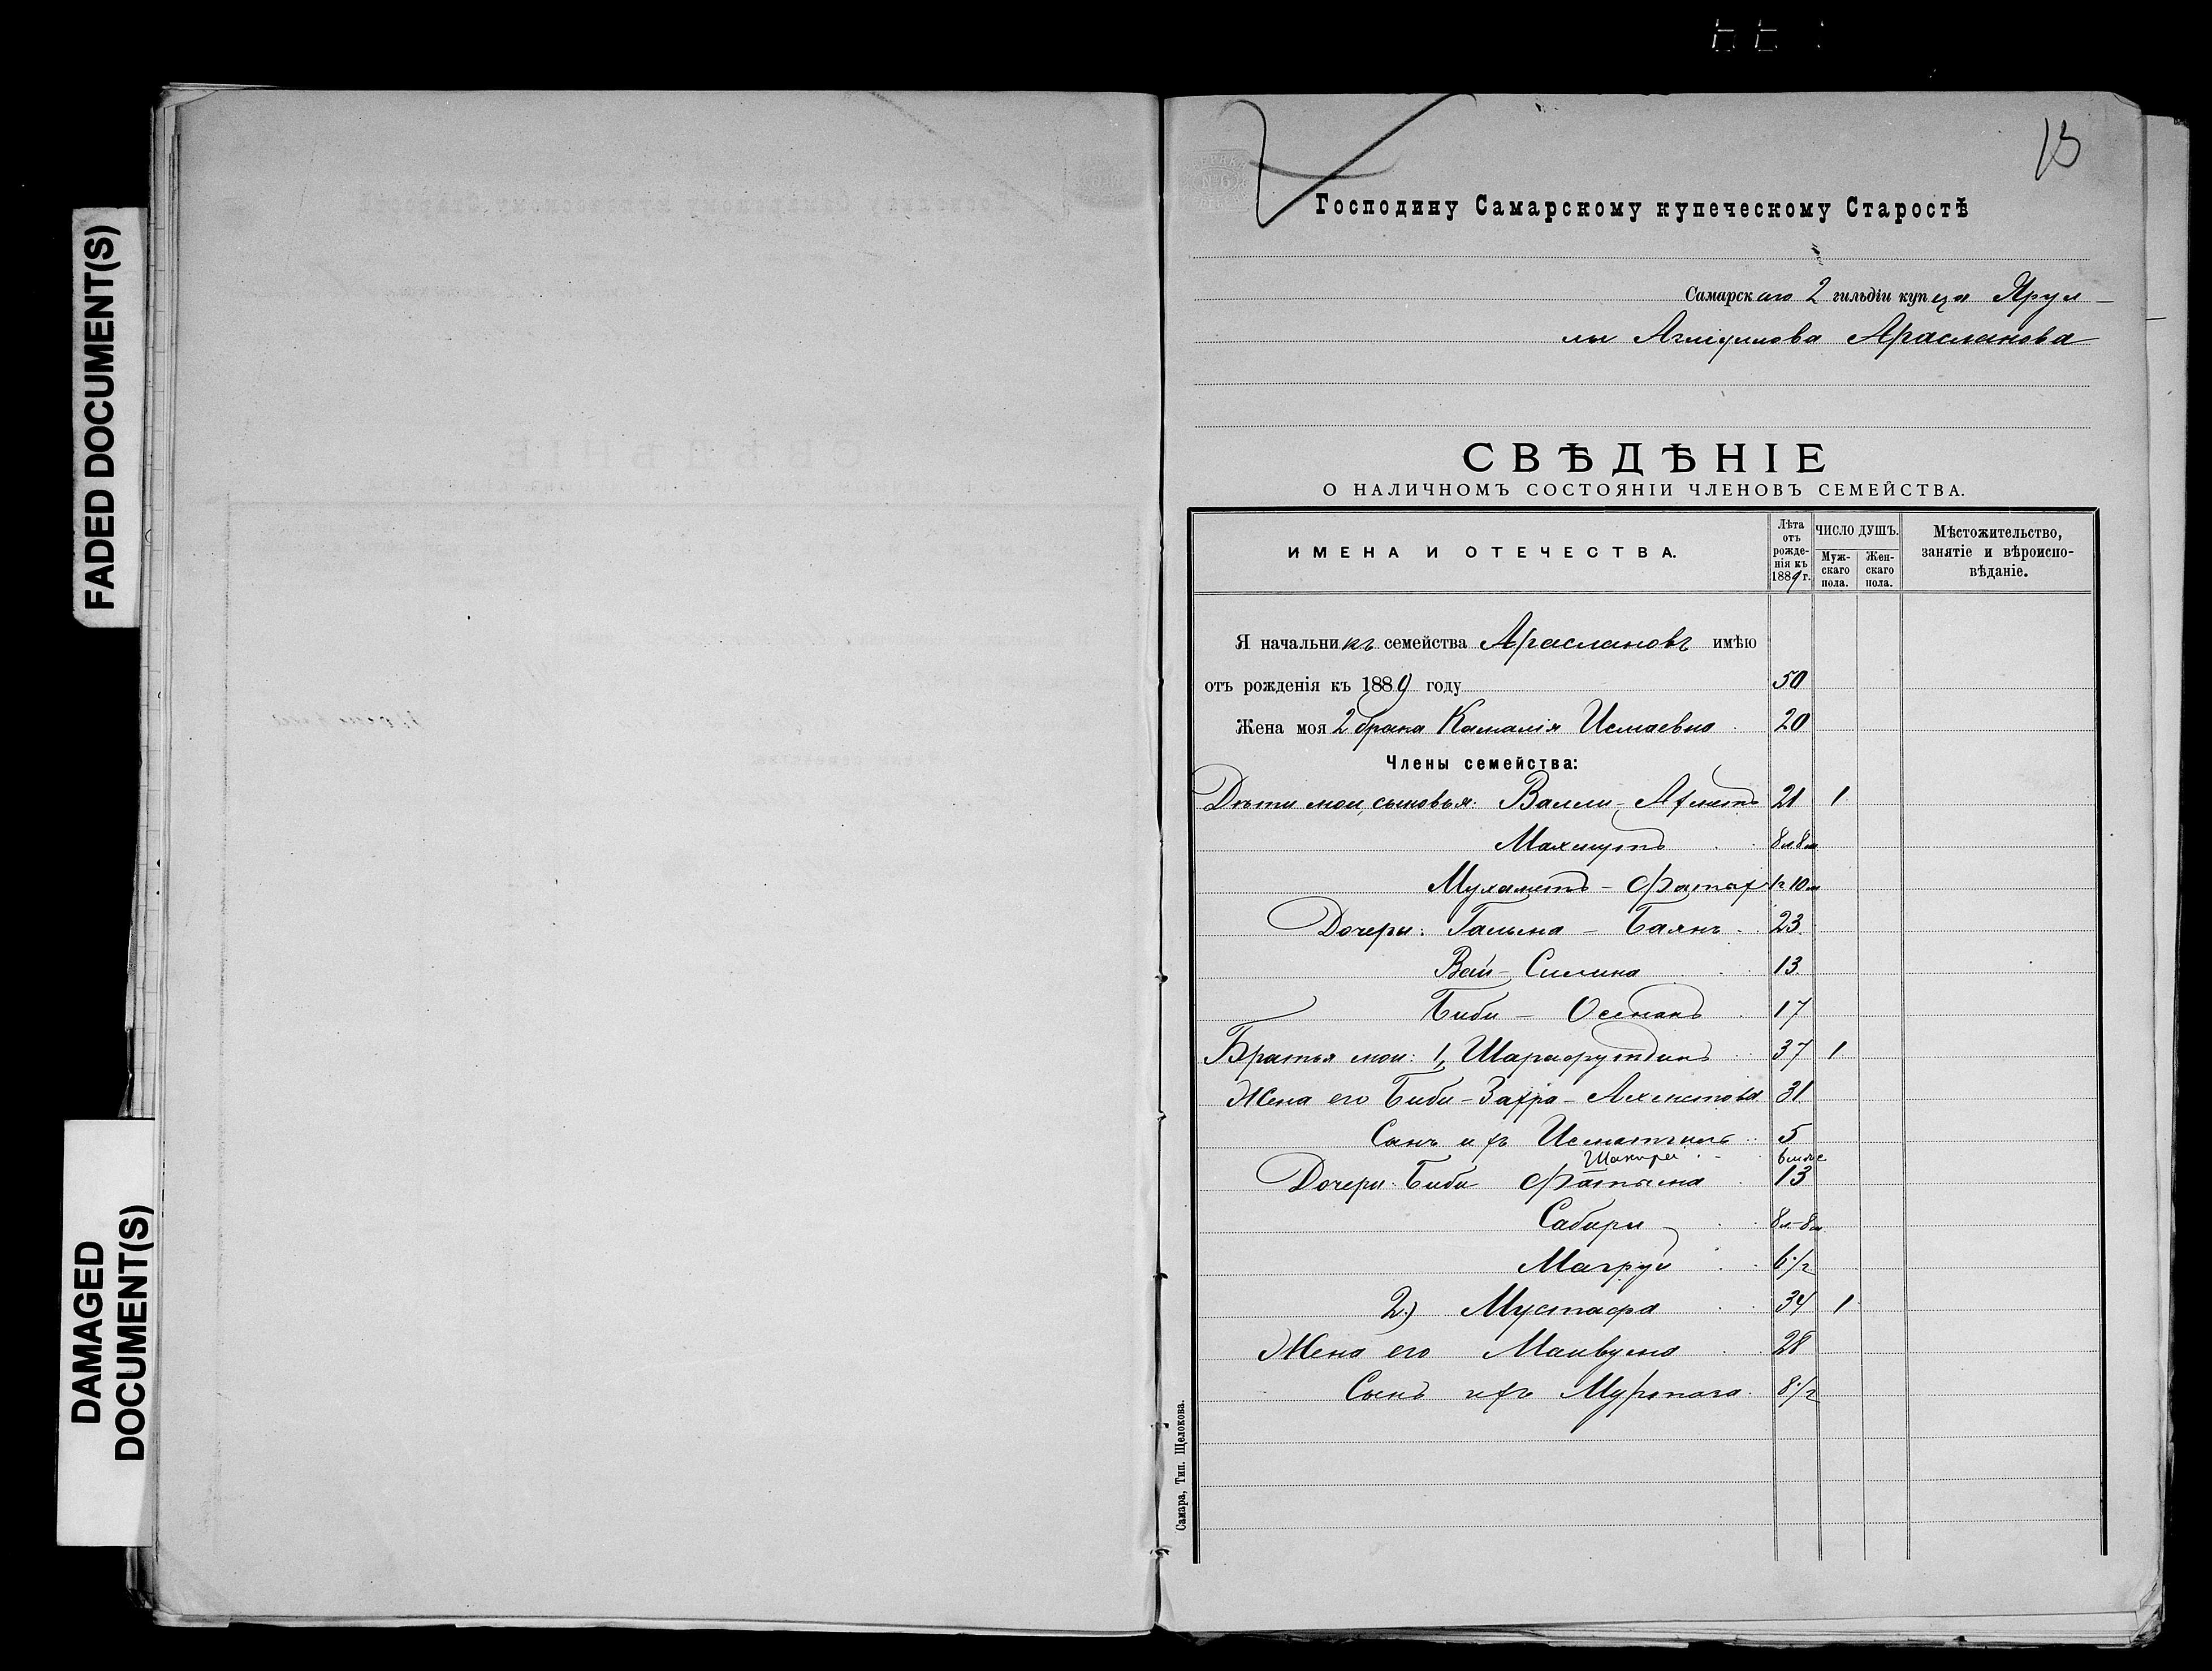 FADED DOCUMENT(S)
DAMAGED
DOCUMENT(S)
13
Господину Самарскому купеческому Старостѣ
Самарскаго 2 гильдіи купца Ярул-
лы Арасланова
СВѢДѢНІЕ
О НАЛИЧНОМЪ СОСТОЯНІИ ЧЛЕНОВЪ СЕМЕЙСТВА.
ИМЕНА И ОТЕЧЕСТВА.
Лѣта отъ рожде-нія къ 1889 г.
ЧИСЛО ДУШЪ.
Муж-скаго пола.
Жен-скаго пола.
Мѣстожительство,
занятіе и вѣроиспо-
вѣданіе.
Я начальникъ семейства Араслановъ имѣю
отъ рожденія къ 1889 году 50
Жена моя 2 брака Камалія Исмаевна 20
Члены семейства:
Дѣти мои, сыновья: Валли-Ахметъ 21 1
Махмутъ 8 л 8 м
Мухаметъ-Фатых 1 г 10 м
Дочери: Гальма - Баянъ 23
Вай-Силина 13
Биби - Осенанъ 17
Братья мои: 1, Шарафутдинъ 37 1
Жена его Биби-Захра-Ахметова 31
Сынъ ихъ 5
Шакирей
Дочери: Биби Фатыма 13
Сабири 8 л-8 м
Магруй 6 1/2
2) Мустафа 34 1
Жена его 28
Сынъ ихъ Муртаза 8 1/2
Самара, Тип. Щелокова.